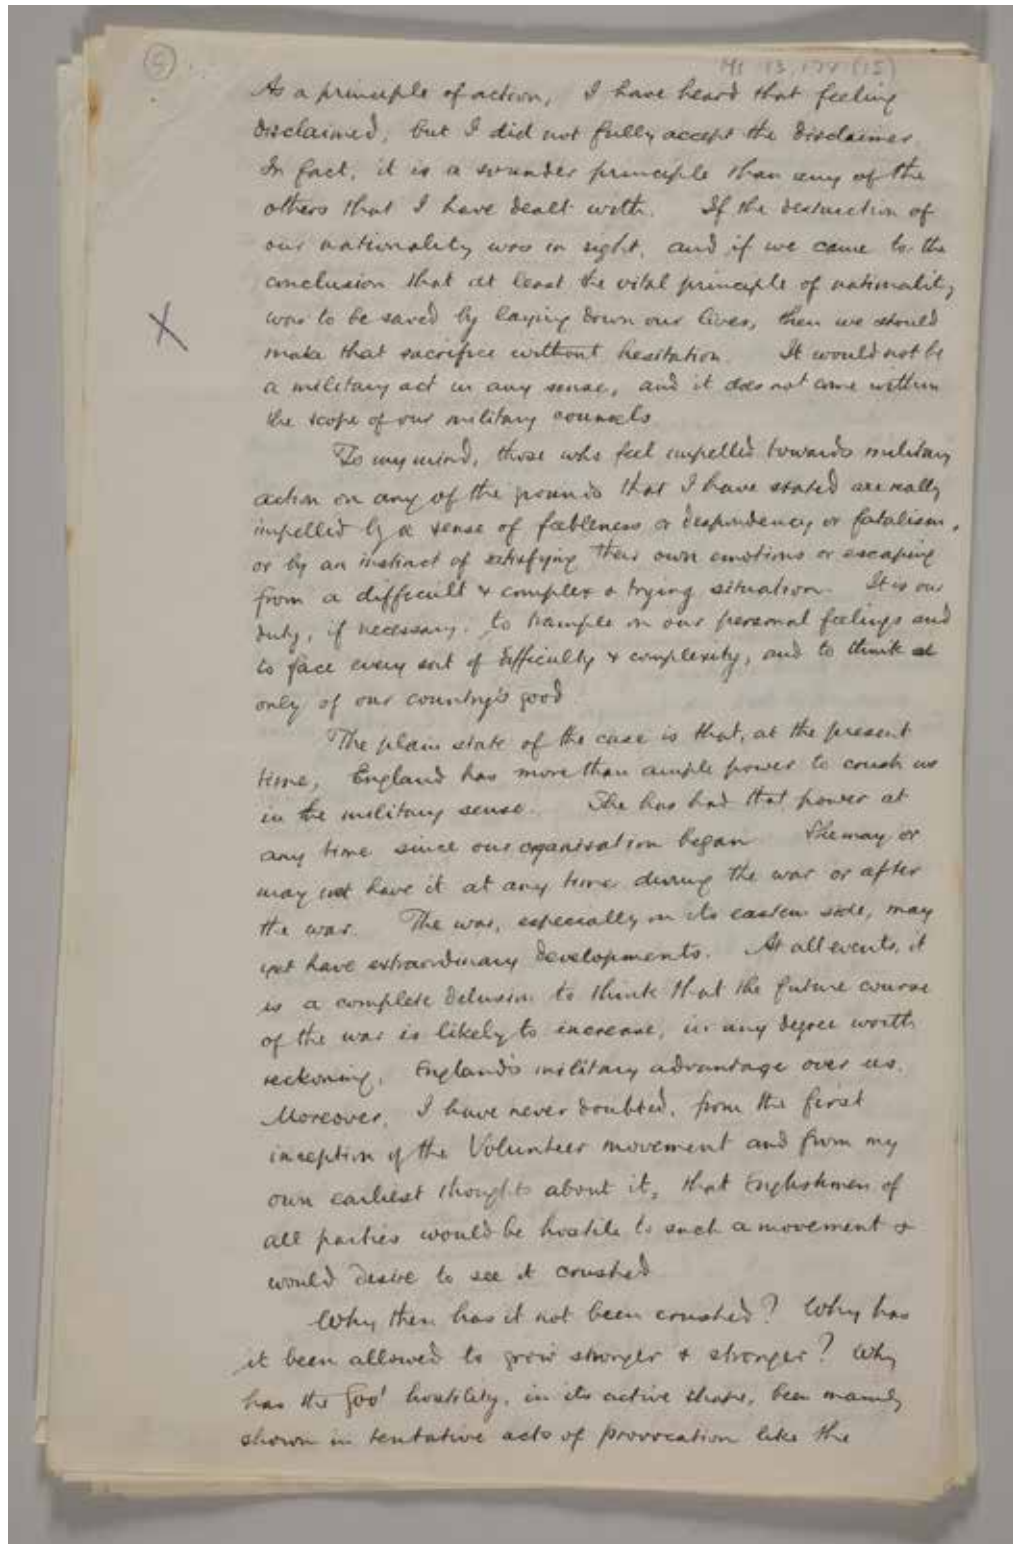 5
MS 13,174 (15)
As a principle of action, I have heard that feeling
disclaimed, but I did not fully accept the disclaimer.
In fact, it is a sounder principle than any of the
others that I have dealt with. If the destruction of
our nationality was in sight, and if we came to the
conclusion that at least the vital principle of nationality
was to be saved by laying down our lives, then we should
make that sacrifice without hesitation. It would not be
a military act in any sense, and it does not come within
the scope of our military counsels.
To my mind, those who feel impelled towards military
action on any of the grounds that I have stated are really
impelled by a sense of feebleness or despondency or fatalism,
or by an instinct of satisfying their own emotions or escaping
from a difficult & complex & trying situation. It is our
duty, if necessary, to trample on our personal feelings and
to face every sort of difficulty & complexity, and to think
only of our country's good.
The plain state of the case is that, at the present
time, England has more than ample power to crush us
in the military sense. She has had that power at
any time since our organisation began. She may or
may not have it at any time during the war or after
the war. The war, especially on its eastern side, may
yet have extraordinary developments. At all events, it
is a complete delusion to think that the future course
of the war is likely to increase, in any degree worth
reckoning, England's military advantage over us.
Moreover, I have never doubted, from the first
inception of the Volunteer movement and from my
own earliest thoughts about it, that Englishmen of
all parties would be hostile to such a movement &
would desire to see it crushed.
Why then has it not been crushed? Why has
it been allowed to grow stronger & stronger? Why
has the Govt hostility, in its active shape, been mainly
shown in tentative acts of provocation like the